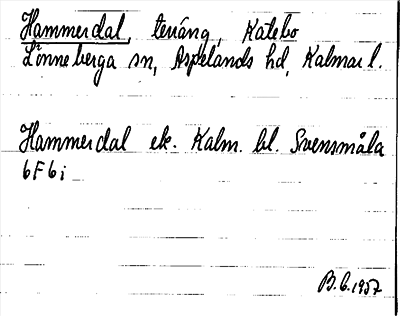 Hammerdal, teräng, Katebo
Lönneberga sn, Aspelands hd, Kalmar l.
Hammerdal ek. Kalm. bl. Svensmåla
6F6i
B.C. 1957